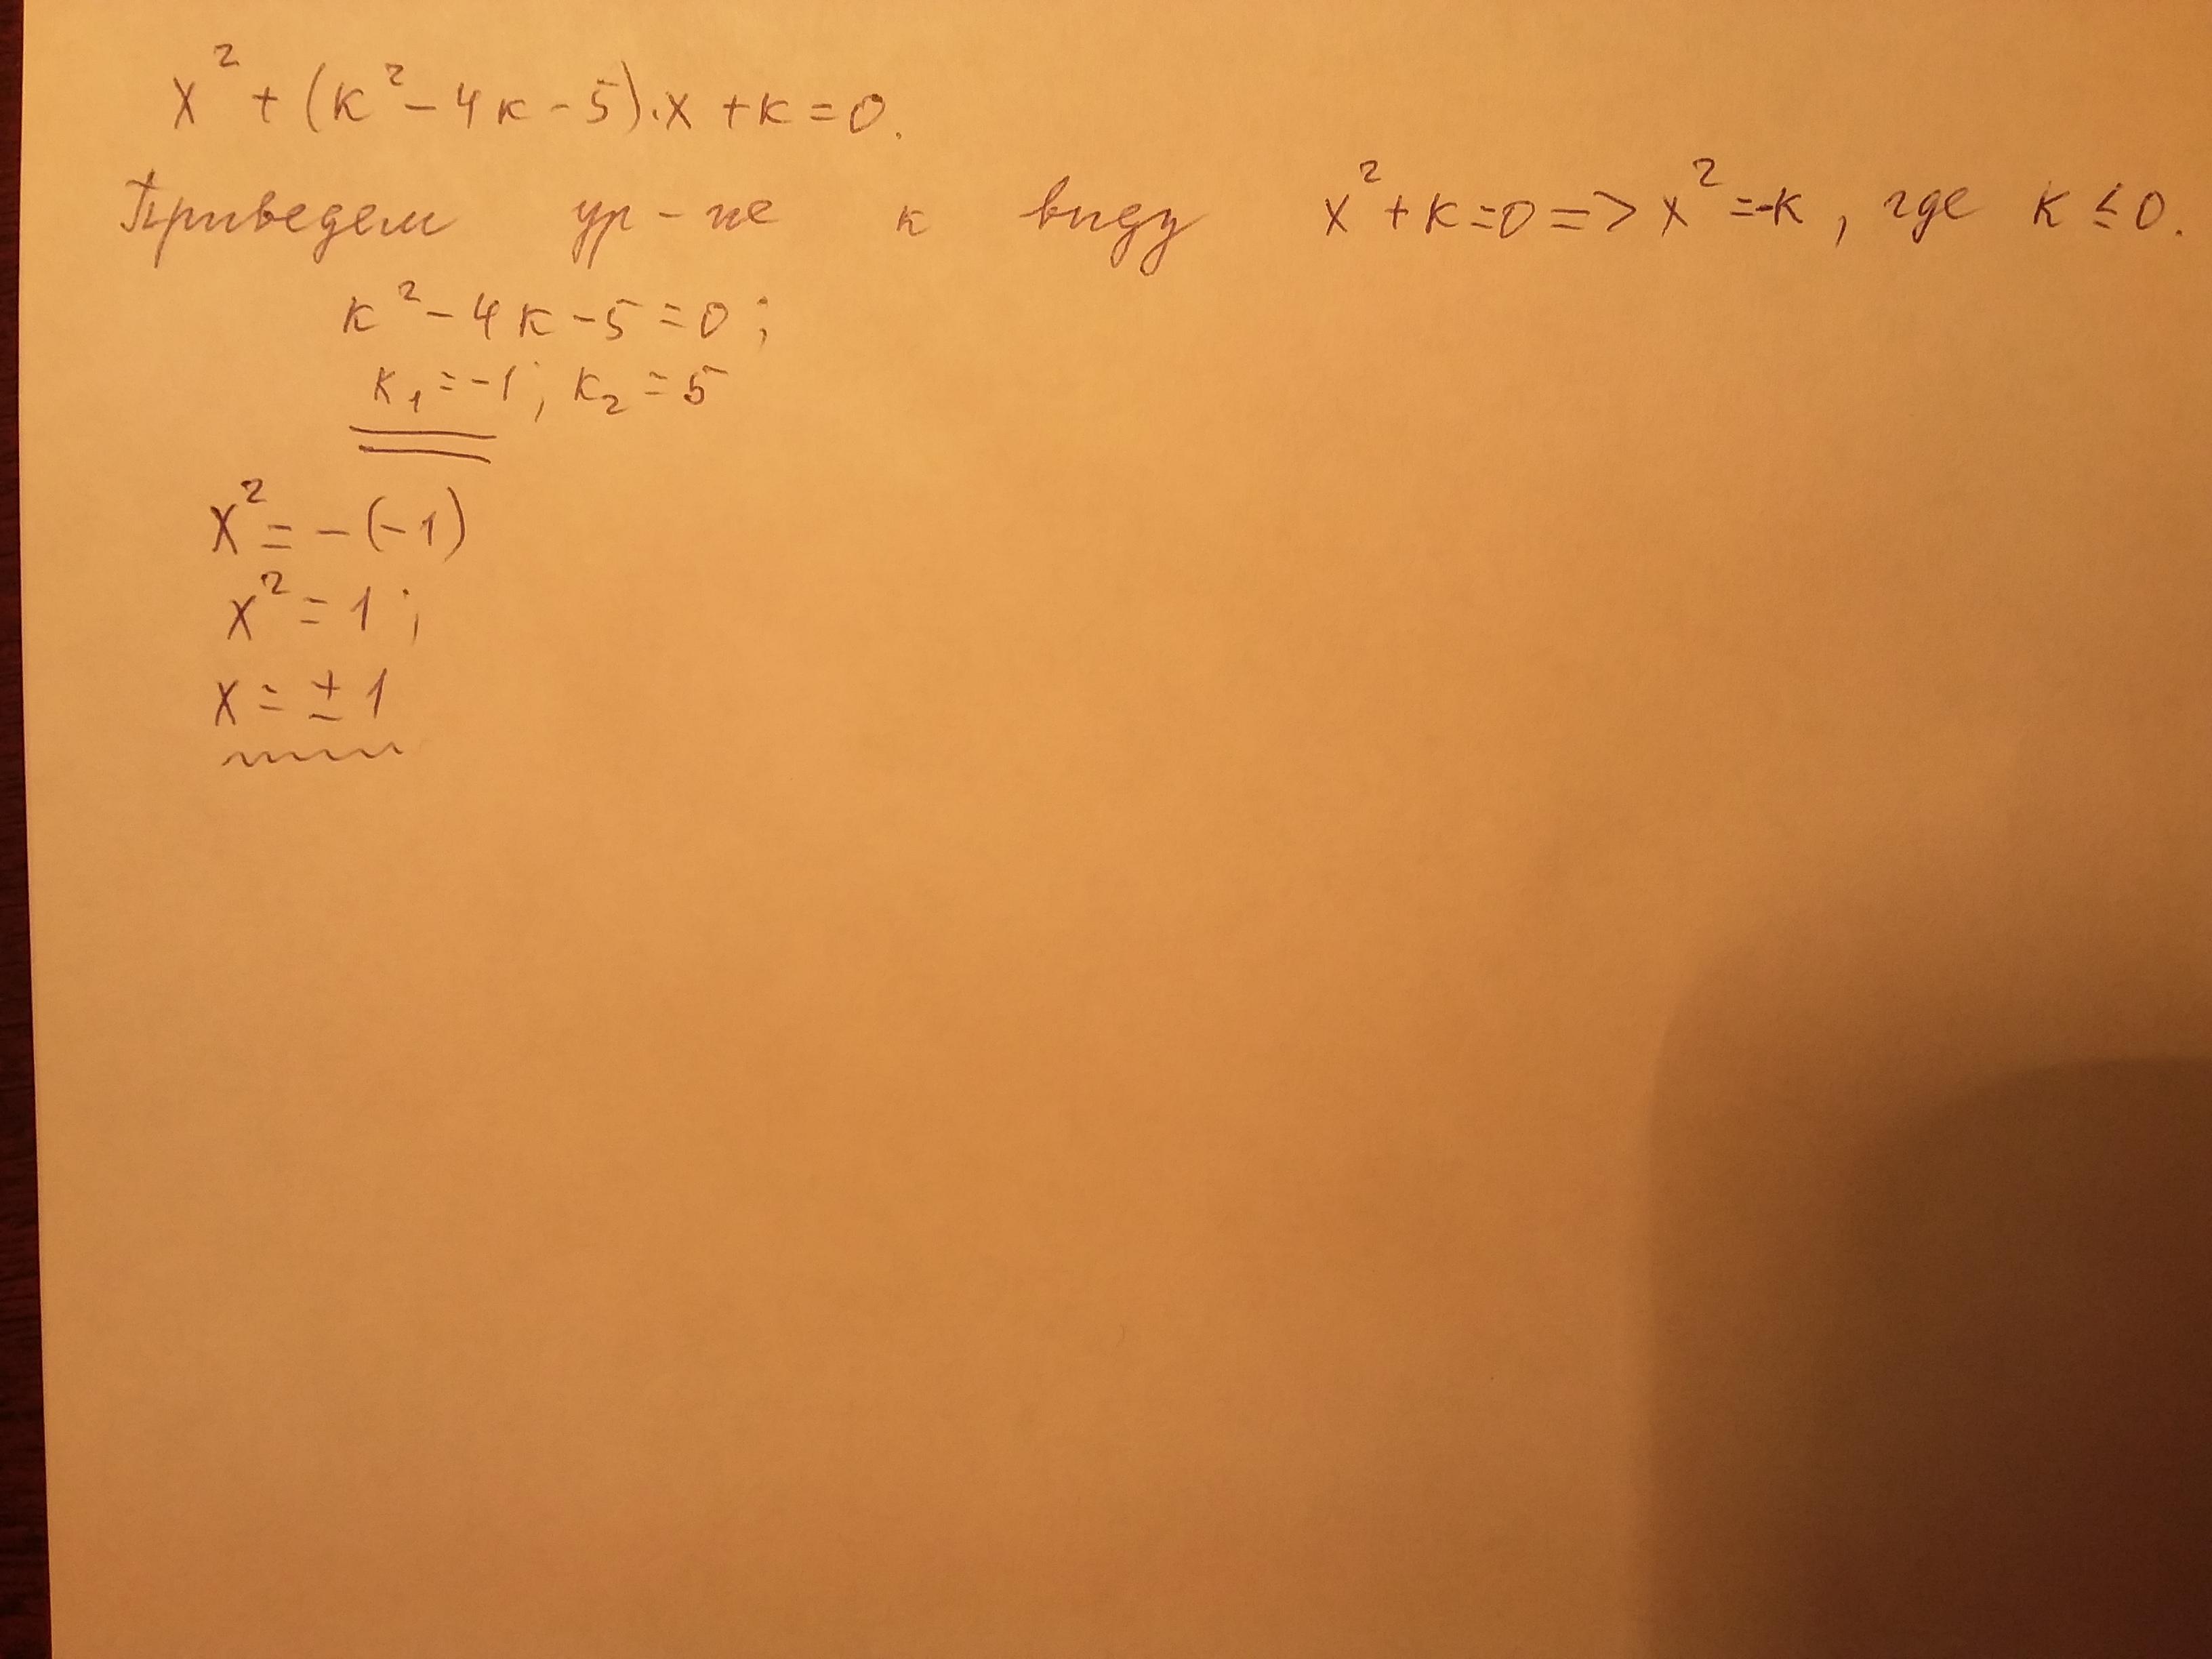 x² + (к² - 4к - 5)·x + к = 0.
Приведем ур-ие к виду x² + к = 0 => x² = -к, где к ≤ 0.
к² - 4к - 5 = 0;
к₁ = -1; к₂ = 5
x² = -(-1)
x² = 1;
x = ± 1